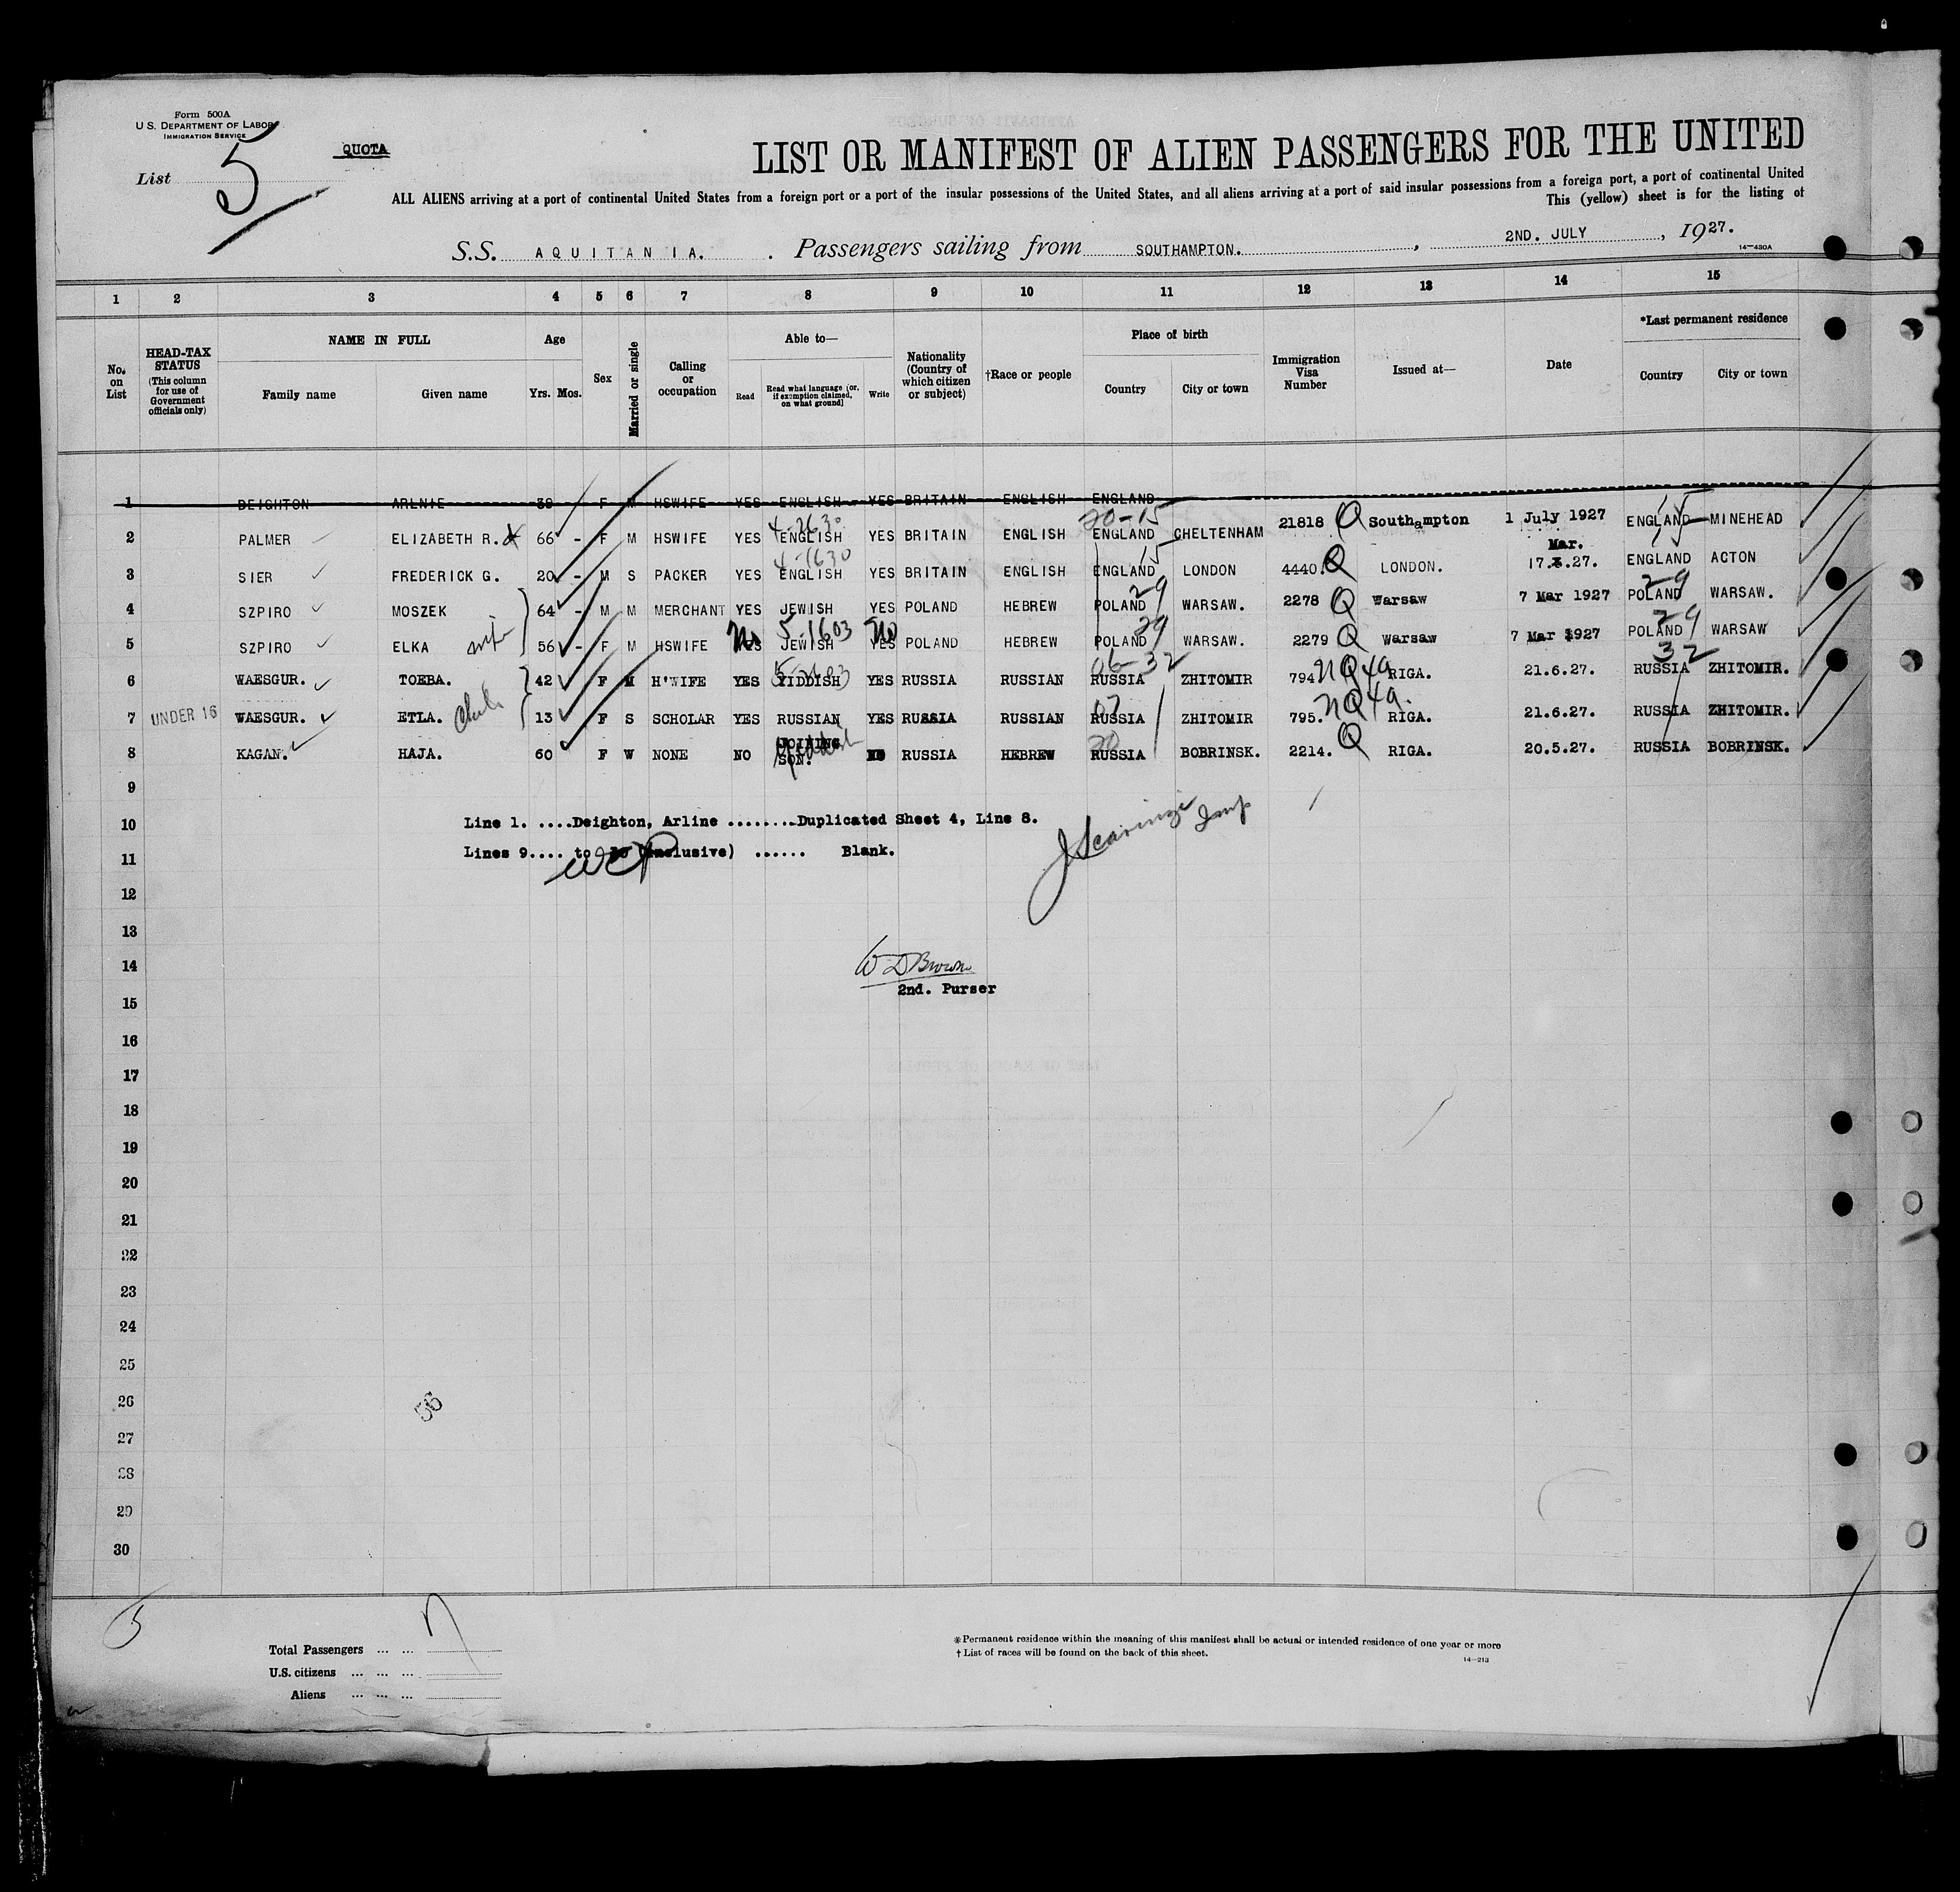 Form 500A
U. S. DEPARTMENT OF LABOR
IMMIGRATION SERVICE
QUOTA
List 5
LIST OR MANIFEST OF ALIEN PASSENGERS FOR THE UNITED
ALL ALIENS arriving at a port of continental United States from a foreign port or a port of the insular possessions of the United States, and all aliens arriving at a port of said insular possessions from a foreign port, a port of continental United
This (yellow) sheet is for the listing of
S.S. AQUITANIA. Passengers sailing from SOUTHAMPTON. , 2ND. JULY , 1927.
14—430A
1 2 3 4 5 6 7 8 9 10 11 12 13 14 15
No. on List
HEAD-TAX STATUS (This column for use of Government officials only)
NAME IN FULL
Family name Given name
Age
Yrs. Mos.
Sex
Married or single
Calling or occupation
Able to—
Read Read what language (or, if exemption claimed, on what ground) Write
Nationality (Country of which citizen or subject)
†Race or people
Place of birth
Country City or town
Immigration Visa Number
Issued at—
Date
*Last permanent residence
Country City or town
1 DEIGHTON ARLNIE 39 F M HSWIFE YES ENGLISH YES BRITAIN ENGLISH ENGLAND
20-15
2 PALMER ELIZABETH R. 66 - F M HSWIFE YES ENGLISH YES BRITAIN ENGLISH ENGLAND CHELTENHAM 21818 Q Southampton 1 July 1927 ENGLAND MINEHEAD
4-1630 15 15
3 SIER FREDERICK G. 20 - M S PACKER YES ENGLISH YES BRITAIN ENGLISH ENGLAND LONDON 4440. Q LONDON. Mar. 17.3.27. ENGLAND ACTON
29 29
4 SZPIRO MOSZEK 64 - M M MERCHANT YES JEWISH YES POLAND HEBREW POLAND WARSAW. 2278 Q Warsaw 7 Mar 1927 POLAND WARSAW.
No 5-1603 No 29 29
5 SZPIRO ELKA wife 56 - F M HSWIFE YES JEWISH YES POLAND HEBREW POLAND WARSAW. 2279 Q Warsaw 7 Mar 1927 POLAND WARSAW
06-32 32
6 WAESGUR. TOEBA. 42 F M H'WIFE YES YIDDISH YES RUSSIA RUSSIAN RUSSIA ZHITOMIR 794 NQ 4a RIGA. 21.6.27. RUSSIA ZHITOMIR.
07
7 UNDER 16 WAESGUR. ETLA. 13 F S SCHOLAR YES RUSSIAN YES RUSSIA RUSSIAN RUSSIA ZHITOMIR 795. NQ 4a. RIGA. 21.6.27. RUSSIA ZHITOMIR.
20
8 KAGAN. HAJA. 60 F W NONE NO JOINING SON. NO RUSSIA HEBREW RUSSIA BOBRINSK. 2214. Q RIGA. 20.5.27. RUSSIA BOBRINSK.
9
10
Line 1. ....Deighton, Arline ........Duplicated Sheet 4, Line 8.
11
Lines 9.... to 30 (inclusive) ...... Blank.
12
13
14
W D Brown
2nd. Purser
15
16
17
18
19
20
21
22
23
24
25
26
56
27
28
29
30
Total Passengers ... ... 7
U.S. citizens ... ... ...
Aliens ... ... ...
*Permanent residence within the meaning of this manifest shall be actual or intended residence of one year or more
†List of races will be found on the back of this sheet.
14—213